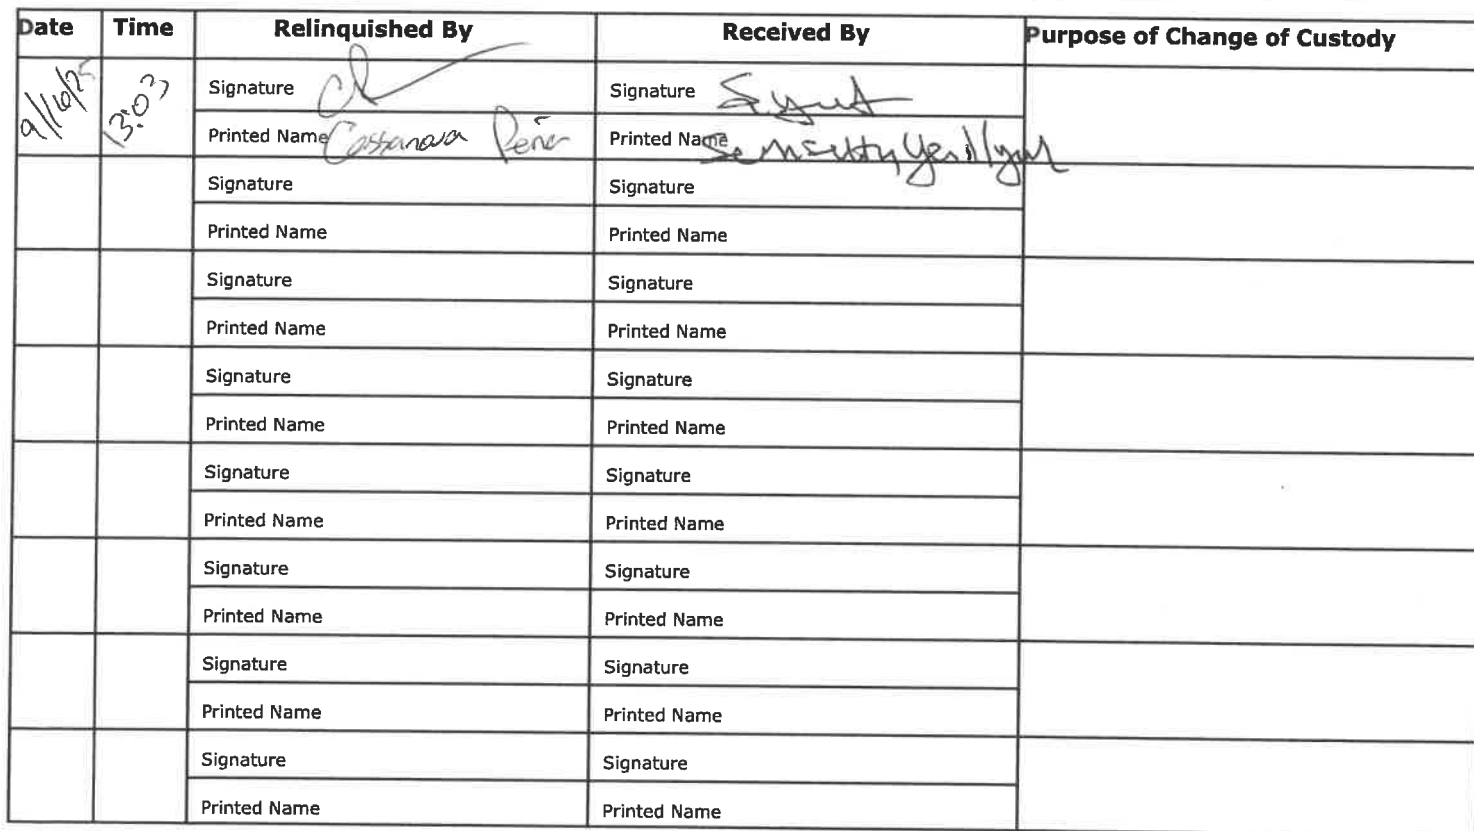 Date Time Relinquished By Received By Purpose of Change of Custody
9/16/25 13:03 Signature Signature S.yut
Printed Name Cassanova Peña Printed Name
Signature Signature
Printed Name Printed Name
Signature Signature
Printed Name Printed Name
Signature Signature
Printed Name Printed Name
Signature Signature
Printed Name Printed Name
Signature Signature
Printed Name Printed Name
Signature Signature
Printed Name Printed Name
Signature Signature
Printed Name Printed Name